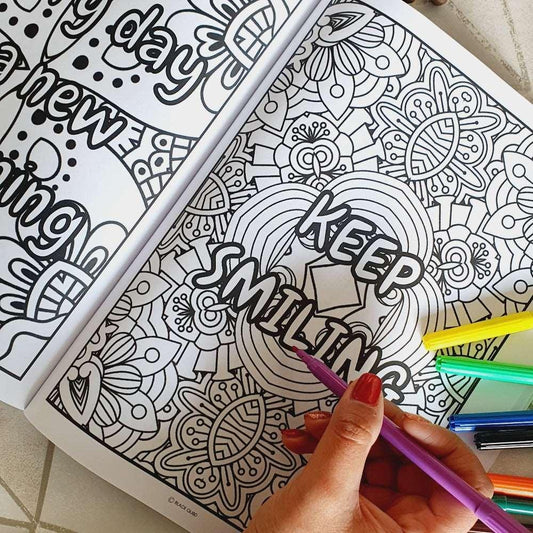 day
new
KEEP
SMILING